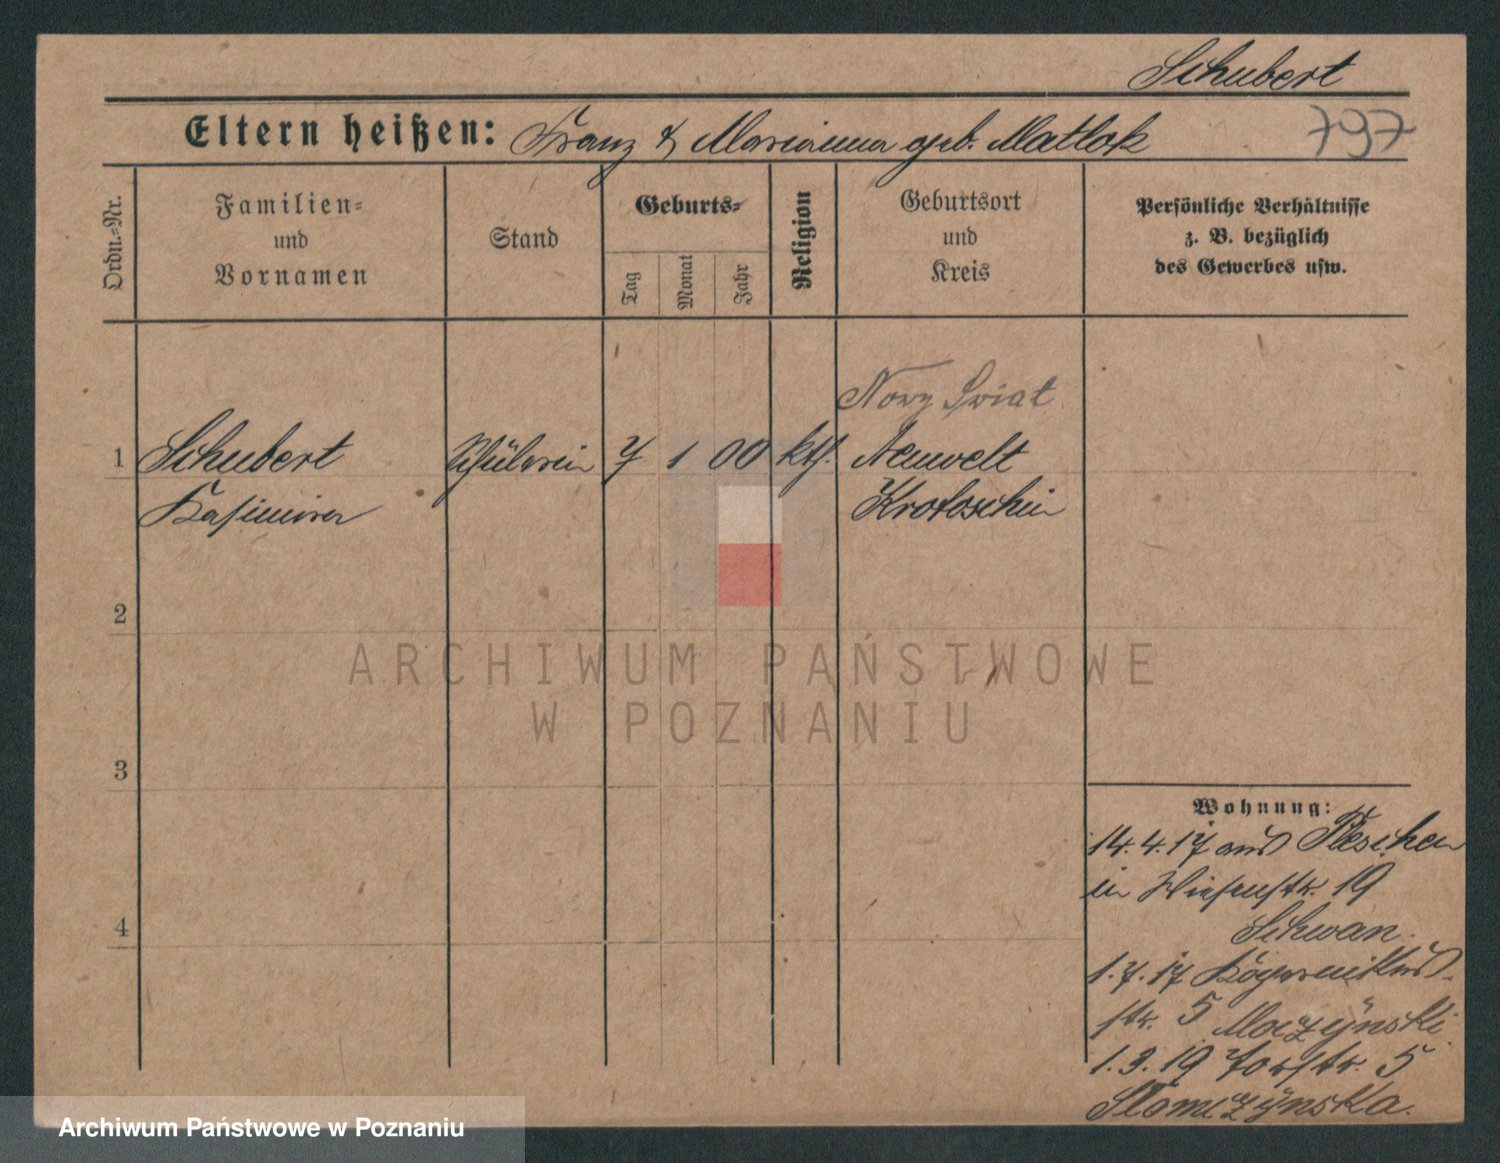 Schubert
Eltern heißen: Franz & Marianna geb. Matlok
797
Ordn.-Nr.
Familien-
und
Vornamen
Stand
Geburts-
Tag
Monat
Jahr
Religion
Geburtsort
und
Kreis
Persönliche Verhältnisse
z. B. bezüglich
des Gewerbes usw.
Nowy Świat
1 Schubert Schülerin 7 1 00 kth. Neuwelt
Kasimira Krotoschin
2
ARCHIWUM PAŃSTWOWE
W POZNANIU
3
Wohnung:
14. 4. 17 aus Pleschen
in Wiesenstr. 19
Schwan.
1. 7. 17
str. 5
1. 3. 19 Torstr. 5
4
Archiwum Państwowe w Poznaniu